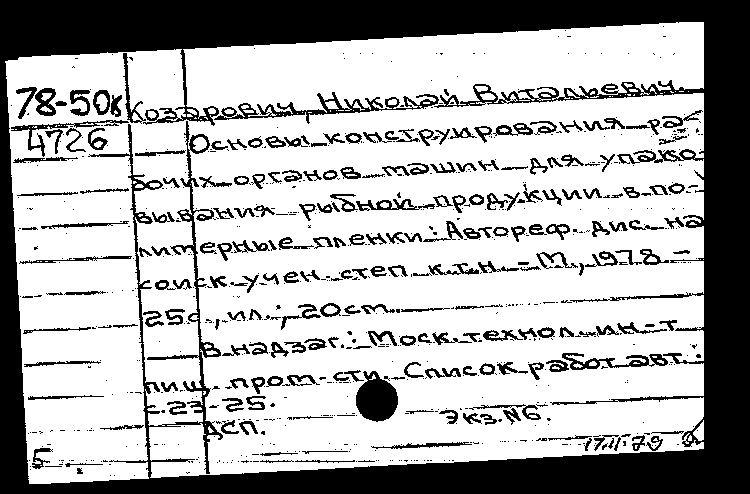 78-50к Козарович, Николай Витальевич.
4726 Основы конструирования ра-
бочих органов машин для упако-
вывания рыбной продукции в по-
литерные пленки: Автореф. дис. на
соиск. учен. степ. к.т.н. - М., 1978 -
25с., ил.; 20см.
В надзаг.: Моск. технол. ин-т
пищ. пром-сти. Список работ авт.:
с. 23-25.
ДСП. Экз. №6.
5